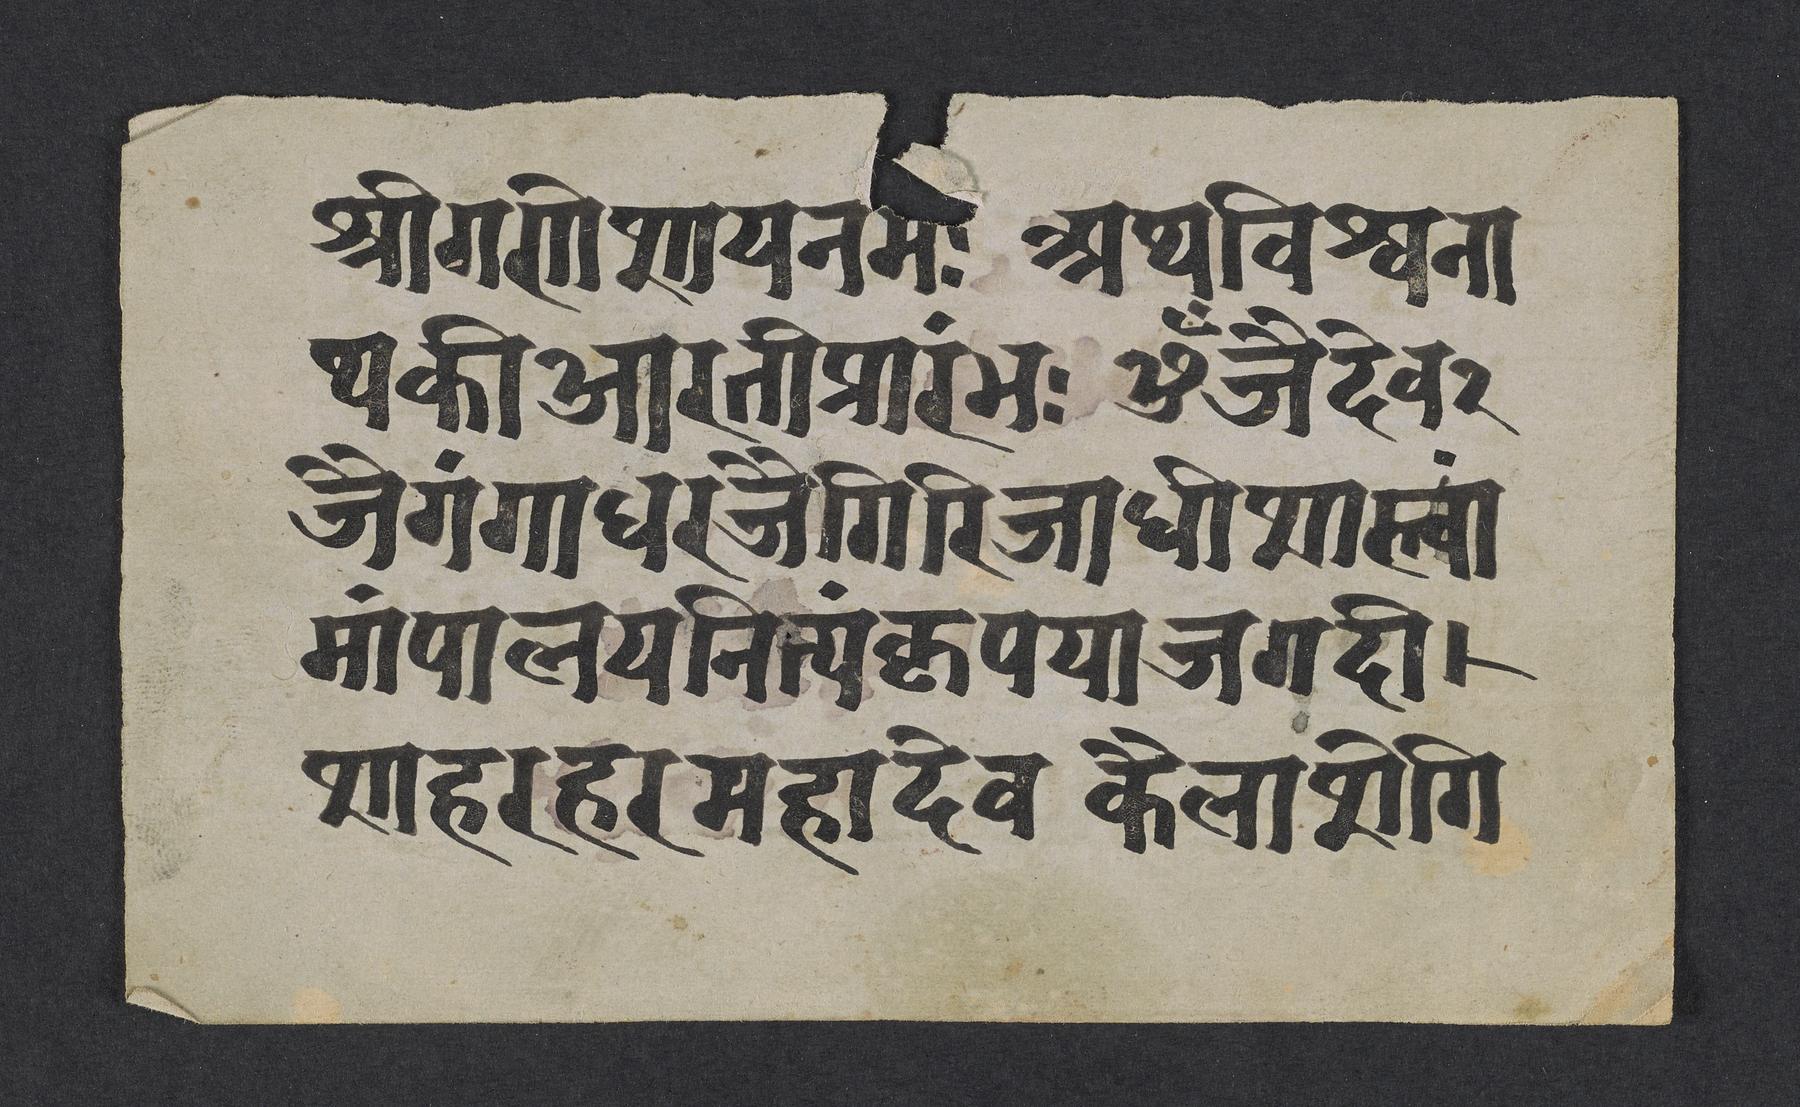 श्रीगणेशायनमः अथविश्वना
थकीआरतीप्रारंभः ॐजैदेव२
जैगंगाधरजैगिरिजाधीशास्त्वां
मांपालयनित्यंकृपयाजगदी।
शाहरहरमहादेव कैलाशेगि